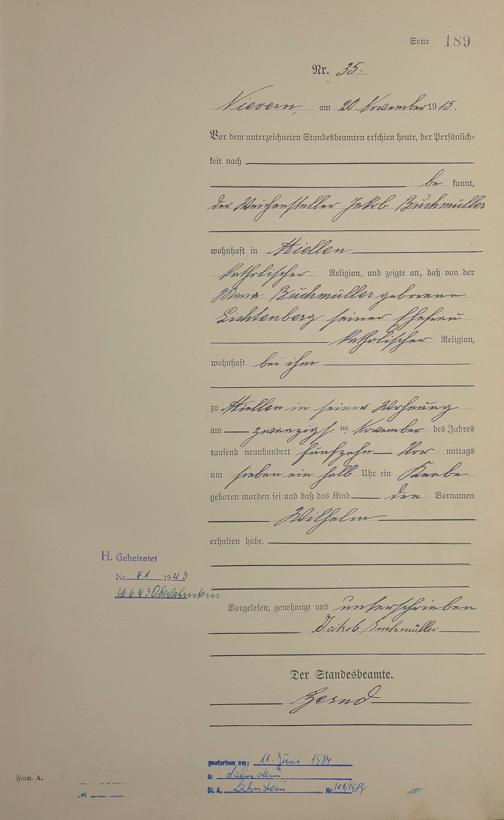 Seite 189
Nr. 35.
Nievern, am 20. November 1915.
Vor dem unterzeichneten Standesbeamten erschien heute, der Persönlich-
keit nach
be kannt,
der Weichensteller Jakob Buchmüller
wohnhaft in Miellen
katholischer Religion, und zeigte an, daß von der
Maria Buchmüller geborene
Lichtenberg seiner Ehefrau
katholischer Religion,
wohnhaft bei ihm
zu Miellen in seiner Wohnung
am zwanzigsten November des Jahres
tausend neunhundert fünfzehn Vor mittags
um sieben ein halb Uhr ein Knabe
geboren worden sei und daß das Kind den Vornamen
Wilhelm
erhalten habe.
H. Geheiratet
Nr. 41 1943
Oberlahnstein
Vorgelesen, genehmigt und unterschrieben
Jakob Buchmüller
Der Standesbeamte.
gestorben am: 11. Juni 1984
in Lahnstein
St. A. Lahnstein Nr.
Form. A.